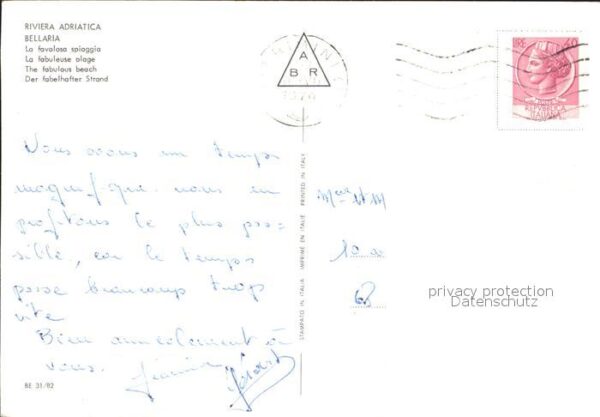 RIVIERA ADRIATICA
BELLARIA
La favolosa spiaggia
La fabuleuse plage
The fabulous beach
Der fabelhafter Strand
A
B R
1974
LIRE 40
REPVBBLICA
ITALIANA
Nous avons un temps
magnifique nous en
profitons le plus pos=
sible, car le temps
passe beaucoup trop
vite
Bien amicalement à
vous.
STAMPATO IN ITALIA IMPRIMÉ EN ITALIE PRINTED IN ITALY
BE 31/82
privacy protection
Datenschutz